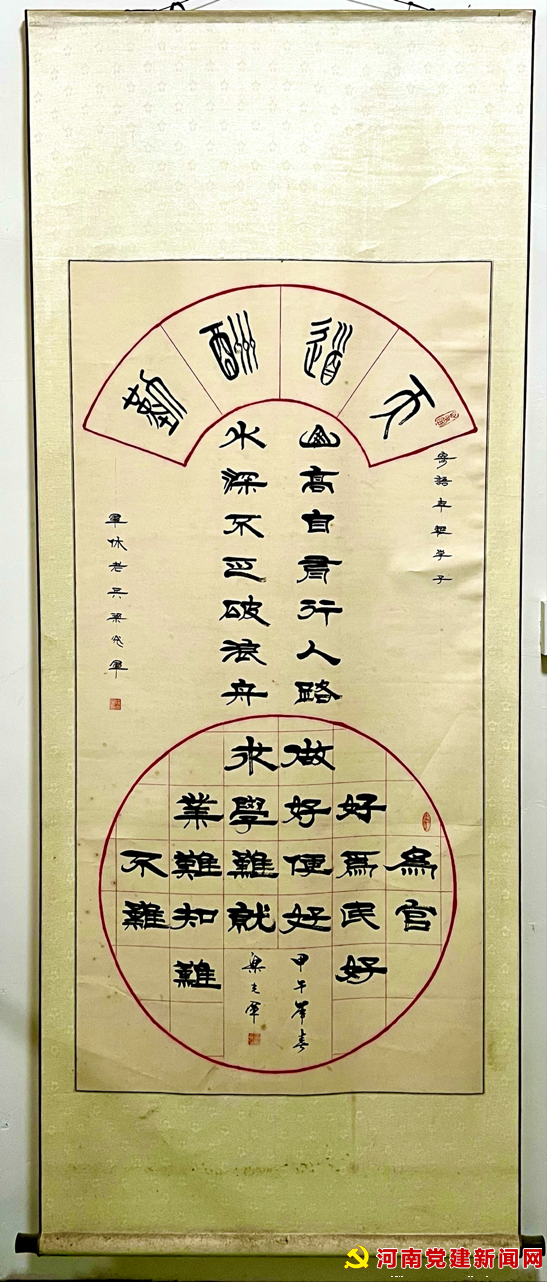 天道酬勤
寄語
山高自有行人路
水深不乏破浪舟
軍休老兵梁軍
為官
好為民好
做好便好
求學難就
業難知難
不難
甲午春
梁軍
河南党建新闻网